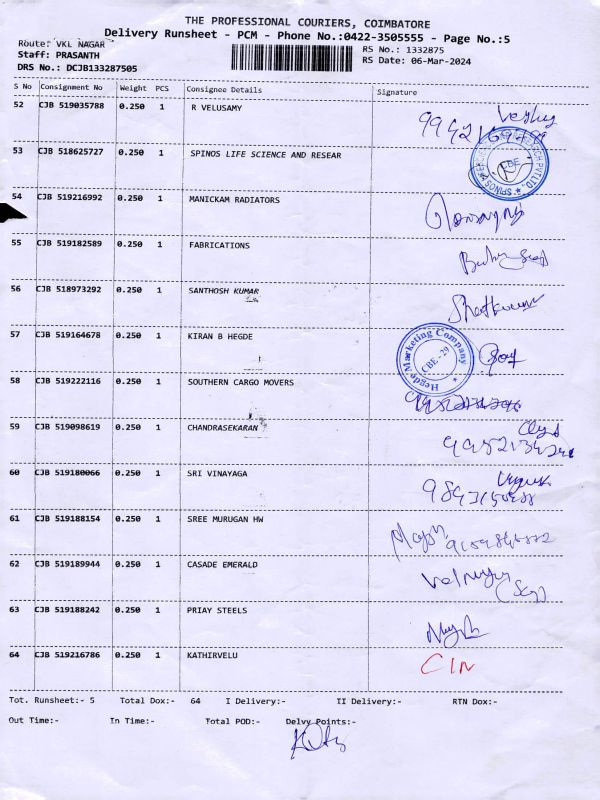 THE PROFESSIONAL COURIERS, COIMBATORE
Delivery Runsheet - PCM - Phone No.:0422-3505555 - Page No.:5
Route: VKL NAGAR
RS No.: 1332875
Staff: PRASANTH
RS Date: 06-Mar-2024
DRS No.: DCJB133287505
S No Consignment No Weight PCS Consignee Details Signature
52 CJB 519035788 0.250 1 R VELUSAMY
53 CJB 518625727 0.250 1 SPINOS LIFE SCIENCE AND RESEAR
CBE
54 CJB 519216992 0.250 1 MANICKAM RADIATORS
55 CJB 519182589 0.250 1 FABRICATIONS
56 CJB 518973292 0.250 1 SANTHOSH KUMAR
57 CJB 519164678 0.250 1 KIRAN B HEGDE
Hegde Marketing Company
CBE - 29
58 CJB 519222116 0.250 1 SOUTHERN CARGO MOVERS
59 CJB 519098619 0.250 1 CHANDRASEKARAN
60 CJB 519180066 0.250 1 SRI VINAYAGA
61 CJB 519188154 0.250 1 SREE MURUGAN HW
62 CJB 519189944 0.250 1 CASADE EMERALD
63 CJB 519188242 0.250 1 PRIAY STEELS
64 CJB 519216786 0.250 1 KATHIRVELU
Tot. Runsheet:- 5 Total Dox:- 64 I Delivery:- II Delivery:- RTN Dox:-
Out Time:- In Time:- Total POD:- Delvy Points:-